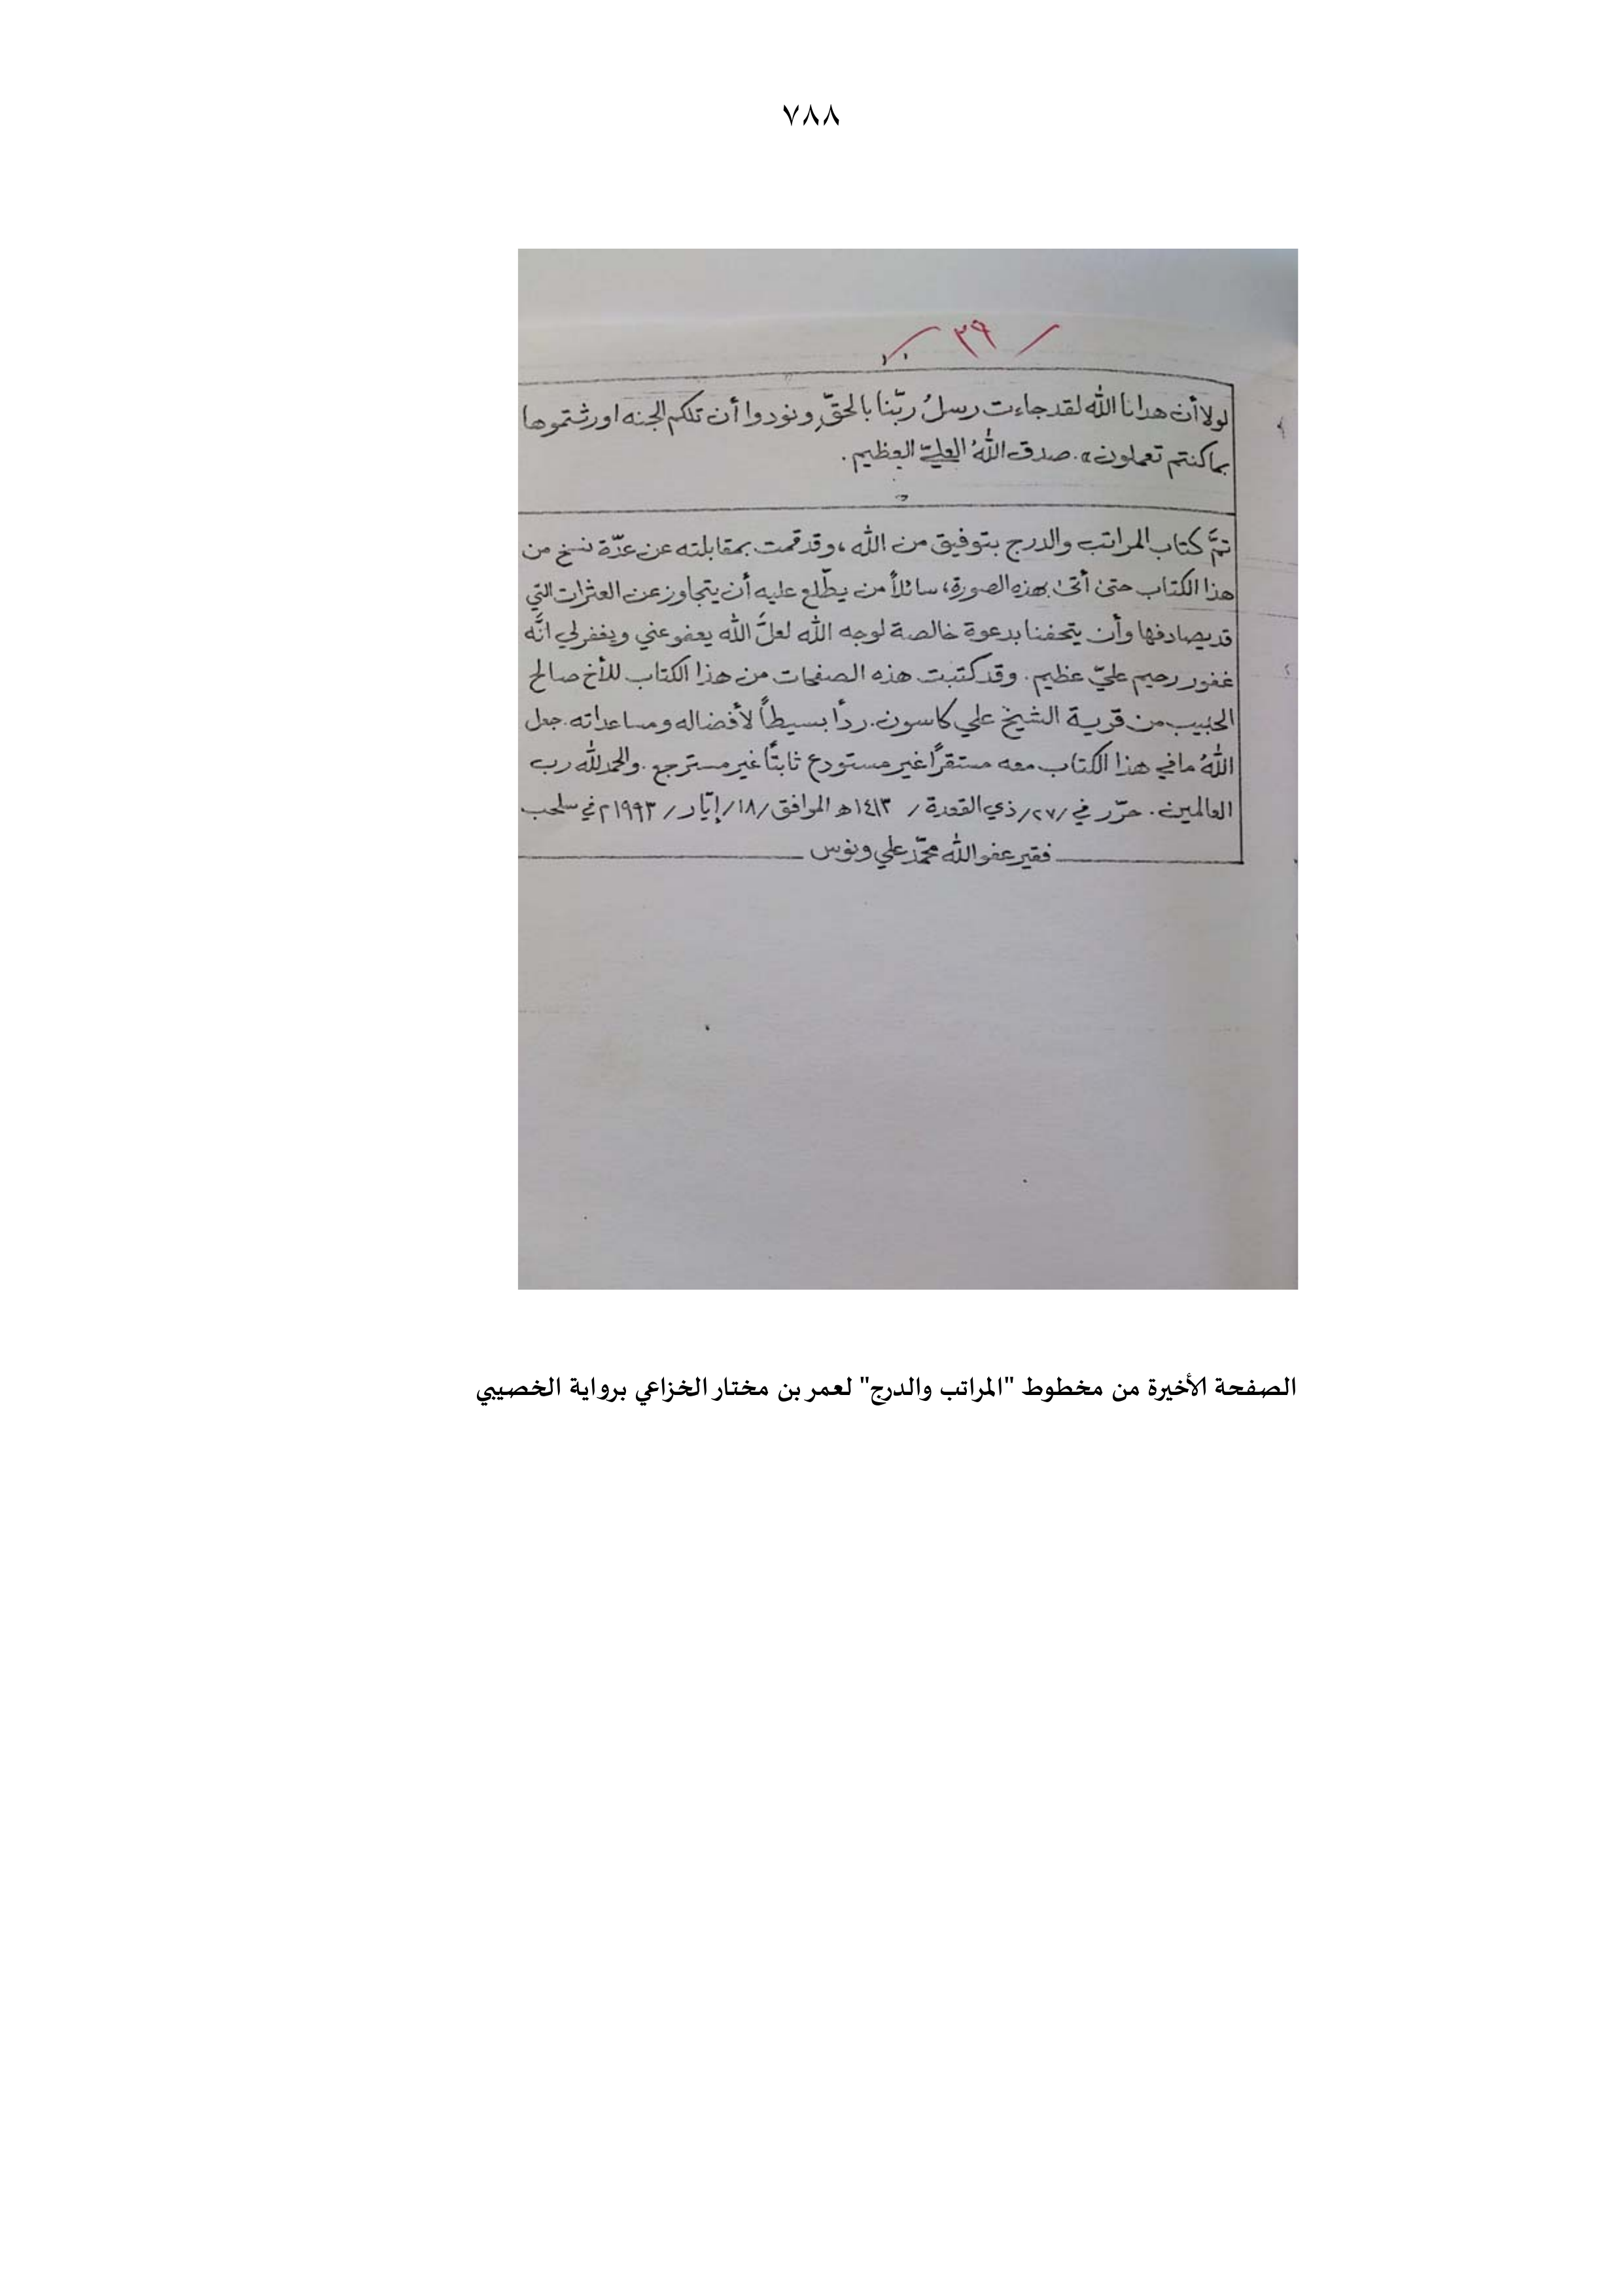 ٧٨٨
٣٩
لولا أن هدانا الله لقد جاءت رسلُ ربّنا بالحقّ ونودوا أن تلكم الجنه اورثتموها
بما كنتم تعملون». صدق اللهُ العليّ العظيم.
تمَّ كتاب المراتب والدرج بتوفيق من الله، وقد قمت بمقابلته عن عدّة نسخ من
هذا الكتاب حتى أتى بهذه الصورة، سائلاً من يطّلع عليه أن يتجاوز عن العثرات التي
قد يصادفها وأن يتحفنا بدعوة خالصة لوجه الله لعلَّ الله يعفو عني ويغفر لي انَّه
غفور رحيم عليّ عظيم. وقد كتبت هذه الصفحات من هذا الكتاب للأخ صالح
الحبيب من قرية الشيخ علي كاسون. رداً بسيطاً لأفضاله ومساعداته. جعل
اللهُ ما في هذا الكتاب معه مستقرًا غير مستودع ثابتًا غير مسترجع. والحمد لله رب
العالمين. حرّر في /٢٧/ ذي القعدة / ١٤١٣ه الموافق /١٨/ إيّار / ١٩٩٣م في سلحب
فقير عفو الله محمّد علي ونوس
الصفحة الأخيرة من مخطوط "المراتب والدرج" لعمر بن مختار الخزاعي برواية الخصيبي